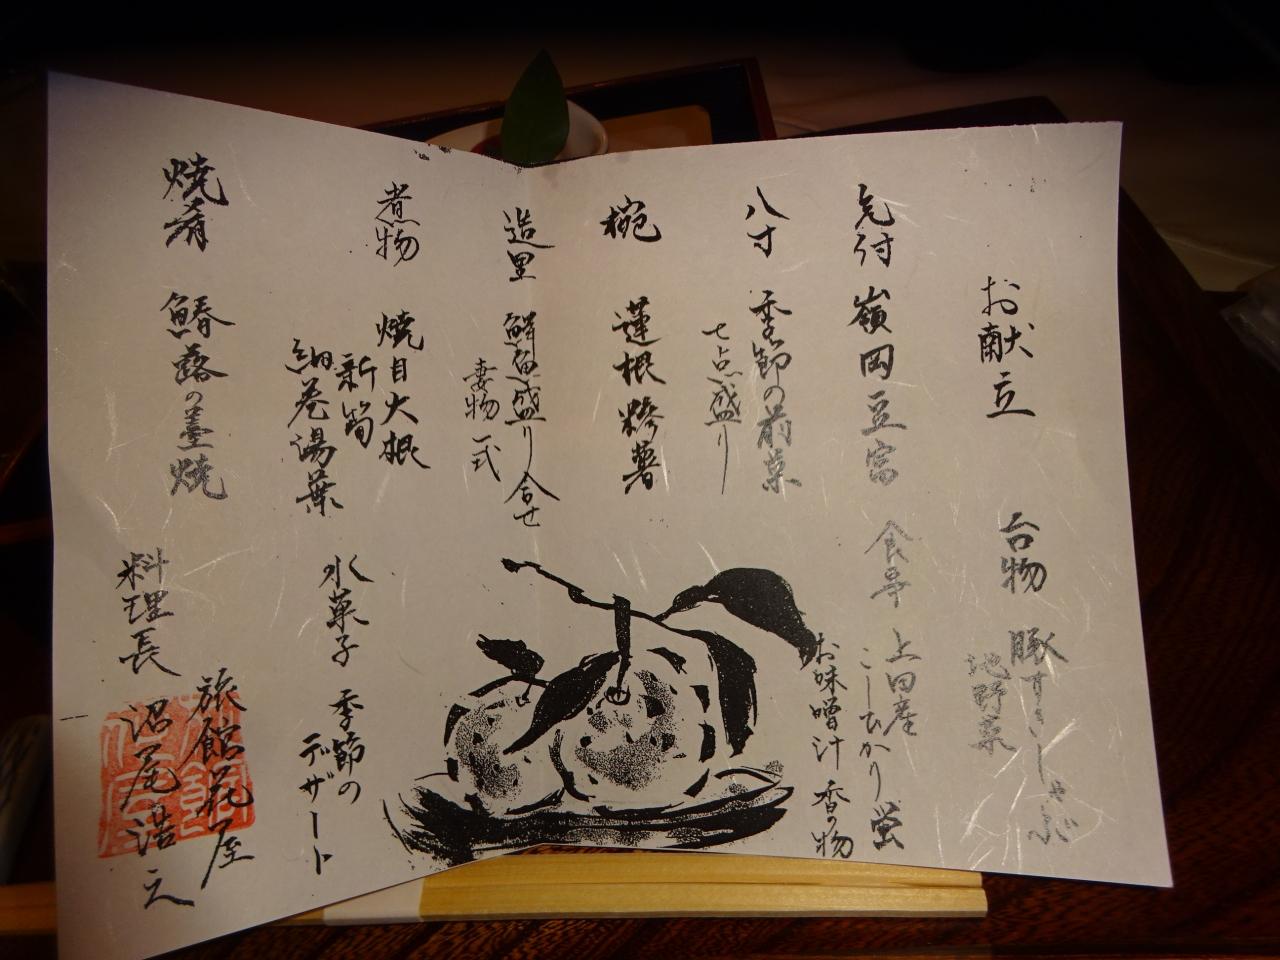 お献立
先付 嶺岡豆富
八寸 季節の前菜
七点盛り
椀 蓮根糝薯
造里 鮮魚盛り合せ
妻物一式
煮物 焼目大根
新筍
絹巻湯葉
焼肴 鰆蕗の薹焼
台物 豚すきしゃぶ
地野菜
食事 上田産
こしひかり 蛍
お味噌汁 香の物
水菓子 季節の
デザート
料理長
旅館花屋
沼尾浩之